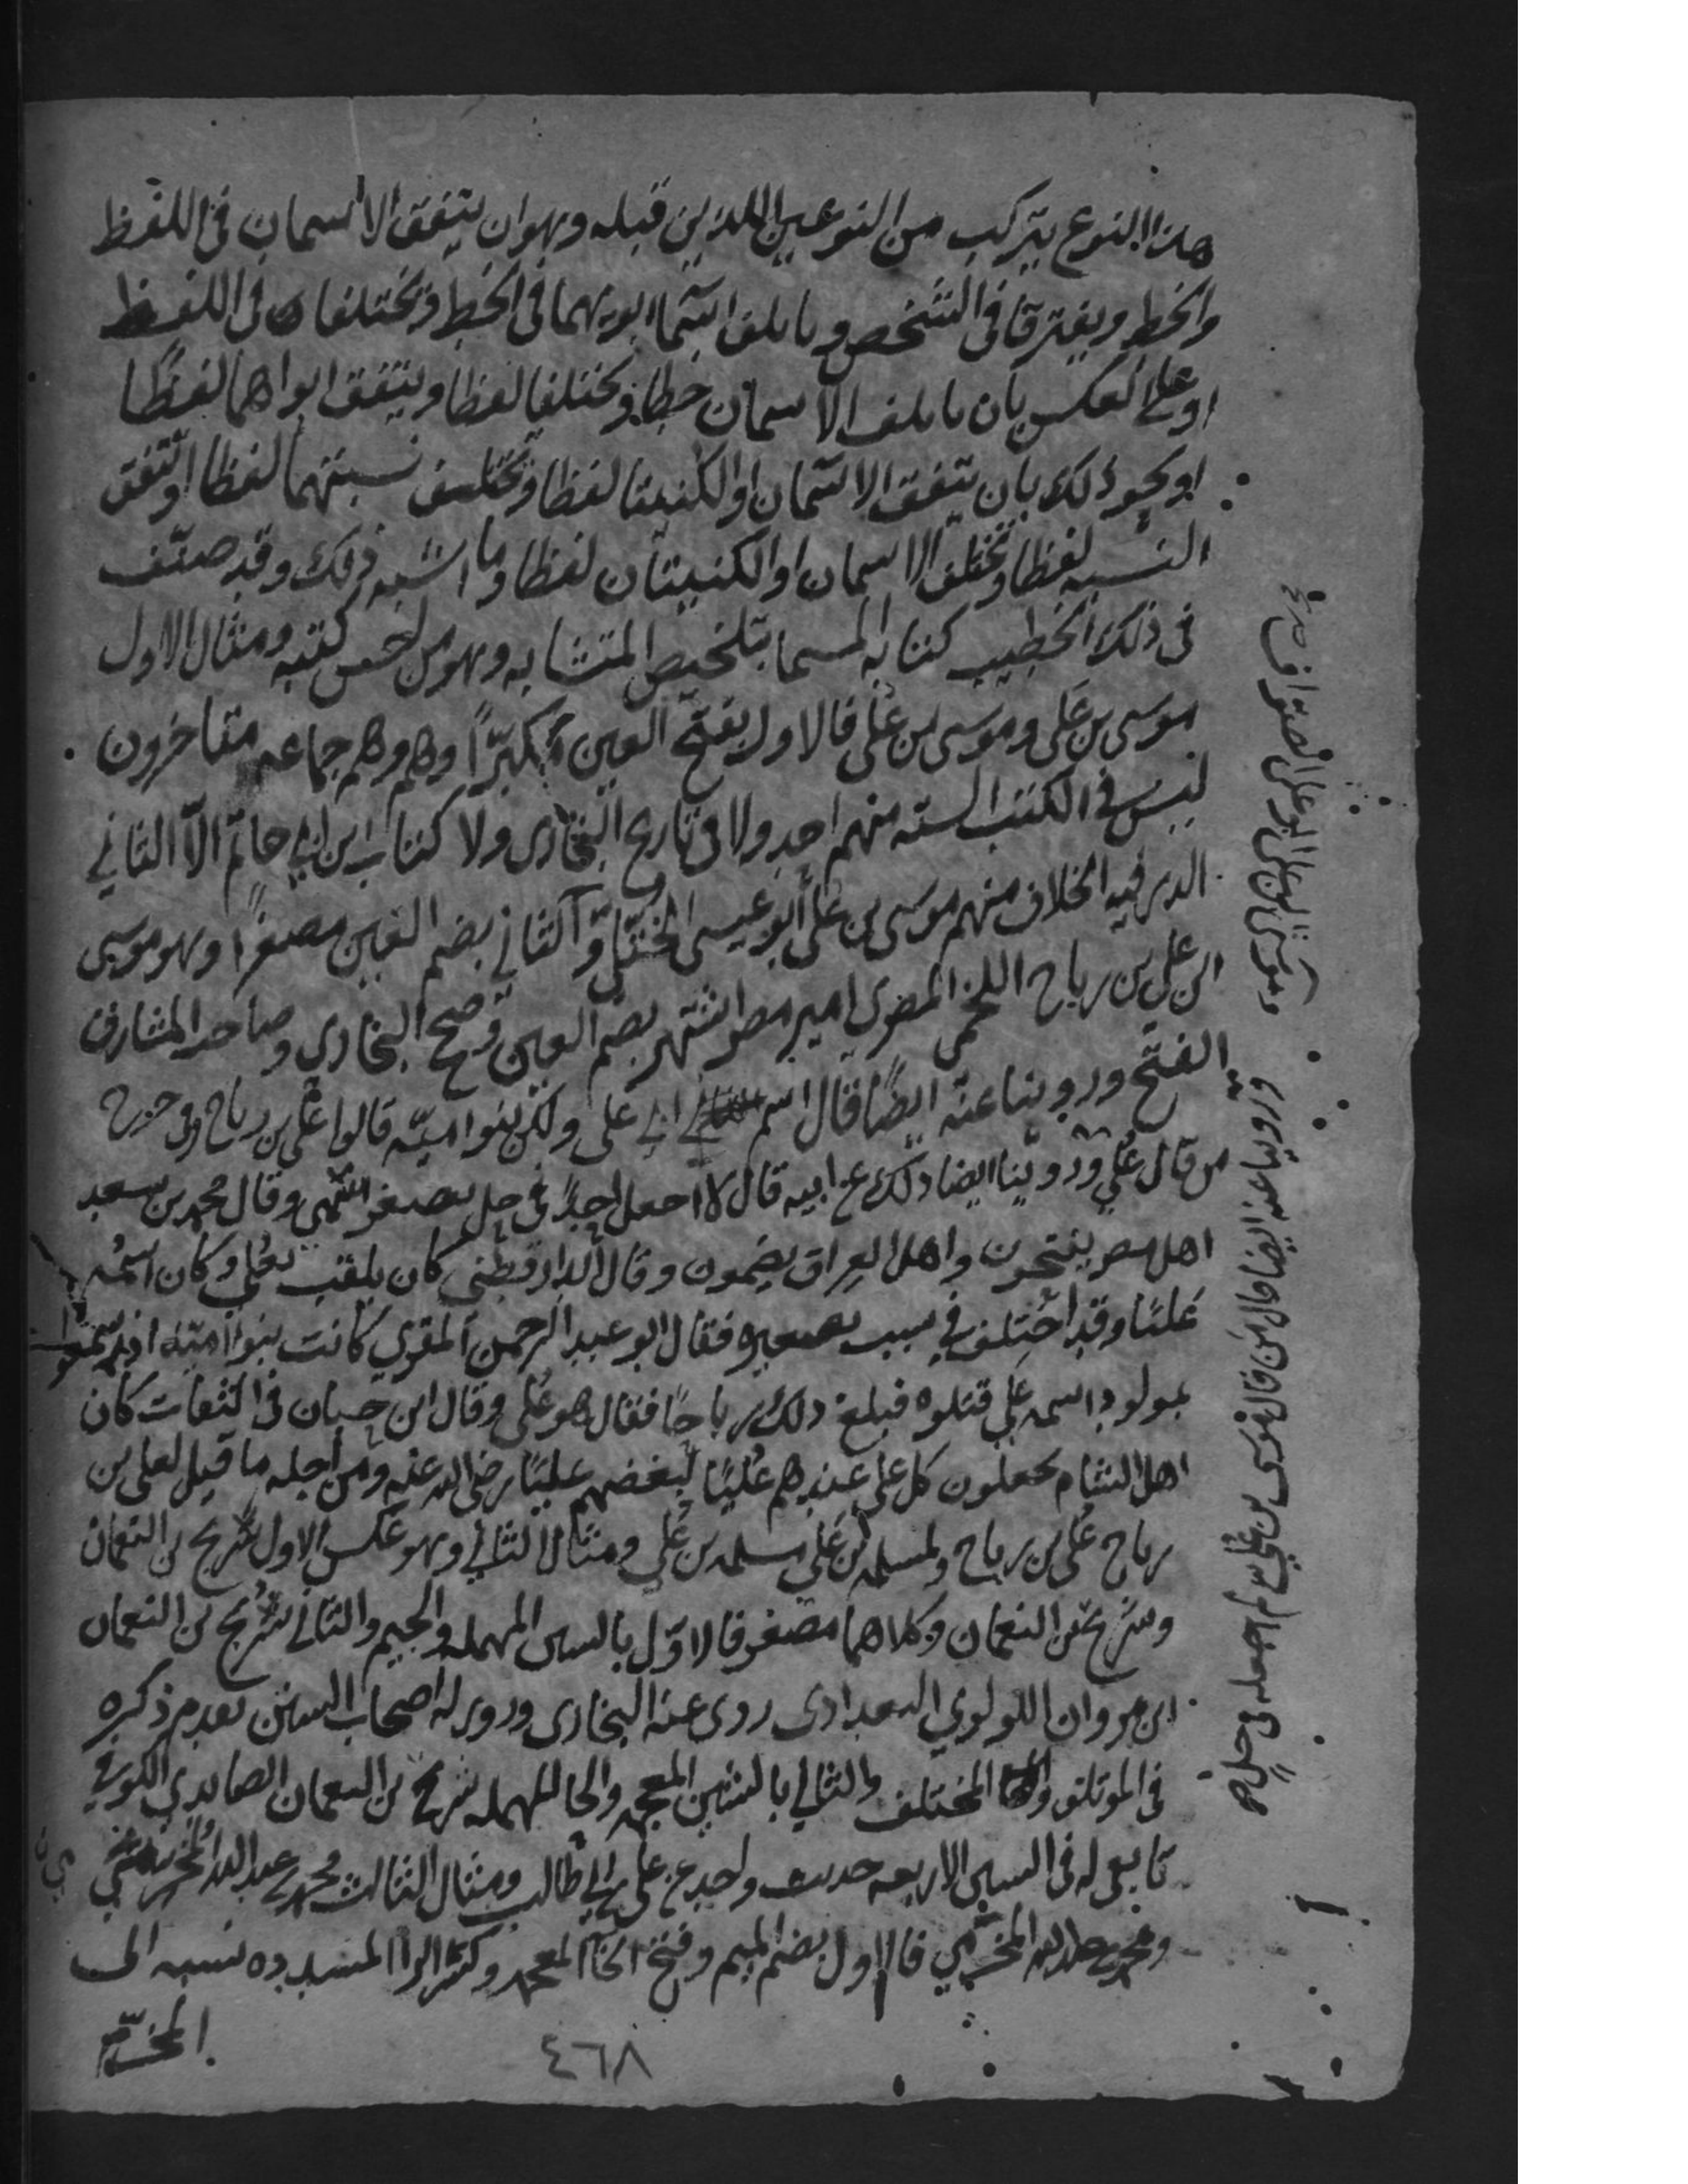 هذا النوع يتركب من النوعين اللذين قبله وهو ان يتفق الاسمان في اللفظ
والخط ويفترقا في الشخص وياتلف اسما ابويهما في الخط ويختلفا في اللفظ
او على العكس بان ياتلف الاسمان خطا ويختلفا لفظا ويتفق ابواهما لفظا
او نحو ذلك بان يتفق الاسمان او الكنيتا لفظا وتختلف نسبتهما لفظا او تتفق
النسبه لفظا وتختلف الاسمان او الكنيتان لفظا وما اشبه ذلك وقد صنف
في ذلك الخطيب كتابه المسما بتلخيص المتشابه وهو من احسن كتبه ومثال الاول
موسى بن عَلى وموسى بن عُلي فالاول بفتح العين مكبرًا وهم وهم جماعه متاخرون
ليس في الكتب السته منهم احد ولا في تاريخ البخارى ولا كتاب ابن ابي حاتم الا الثاني
الذي فيه الخلاف منهم موسى بن على ابو عيسى الختلي والثاني بضم العين مصغرا وهو موسى
ابن علي بن رباح اللخمى المصري امير مصر اشتهر بضم العين وصحح البخاري وصاحب المشارق
الفتح وروينا عنه ايضًا قال اسم ابي على ولكن بنوا اميّه قالوا عُلي بن رباح وفي حرج
من قال عُلي وروينا ايضا ذلك عن ابيه قال لا اجعل احدًا في حل بصغر اسمى وقال محمد بن سعد
اهل مصر يفتحون واهل العراق يضمون وقال الدارقطنى كان يلقب بعُلي وكان اسمه
عَليًا وقد اختلف في سبب تصغيره فقال ابو عبد الرحمن المقري كانت بنوا اميّه اذا سمعوا
بمولود اسمه علي قتلوه فبلغ ذلك رباحًا فقال هو عُلى وقال ابن حبان في الثقات كان
اهل الشام يجعلون كل على عندهم عُليًا لبغضهم عليًا رضي الله عنه ومن اجله ما قيل لعلى بن
رباح عُلى بن رباح ولمسلمه بن عَلي مسلمه بن عُلي ومثال الثاني وهو عكس الاول سريج بن النعمان
وشريح بن النعمان وكلاهما مصغر فالاوّل بالسين المهمله والجيم والثاني سُريج بن النعمان
ابن مروان اللولوي البغدادى روى عنه البخارى وروى له اصحاب السنن تقدم ذكره
في الموتلف والمختلف والثاني بالشين المعجمه والحا المهمله شريح بن النعمان الصايدي الكوفي
تابعي له في السنن الاربعه حديث واحد عن على بن ابي طالب ومثال الثالث محمد بن عبد الله المُخرّمي
ومحمد بن عبد الله المَخْرَمي فالاول بضم الميم وفتح الخا المعجمه وكسر الرا المشدده نسبه الى
المخرّم
٤٦٨
وروينا عنه ايضا قال من قال موسى بن عُلي لم اجعله في حل صح